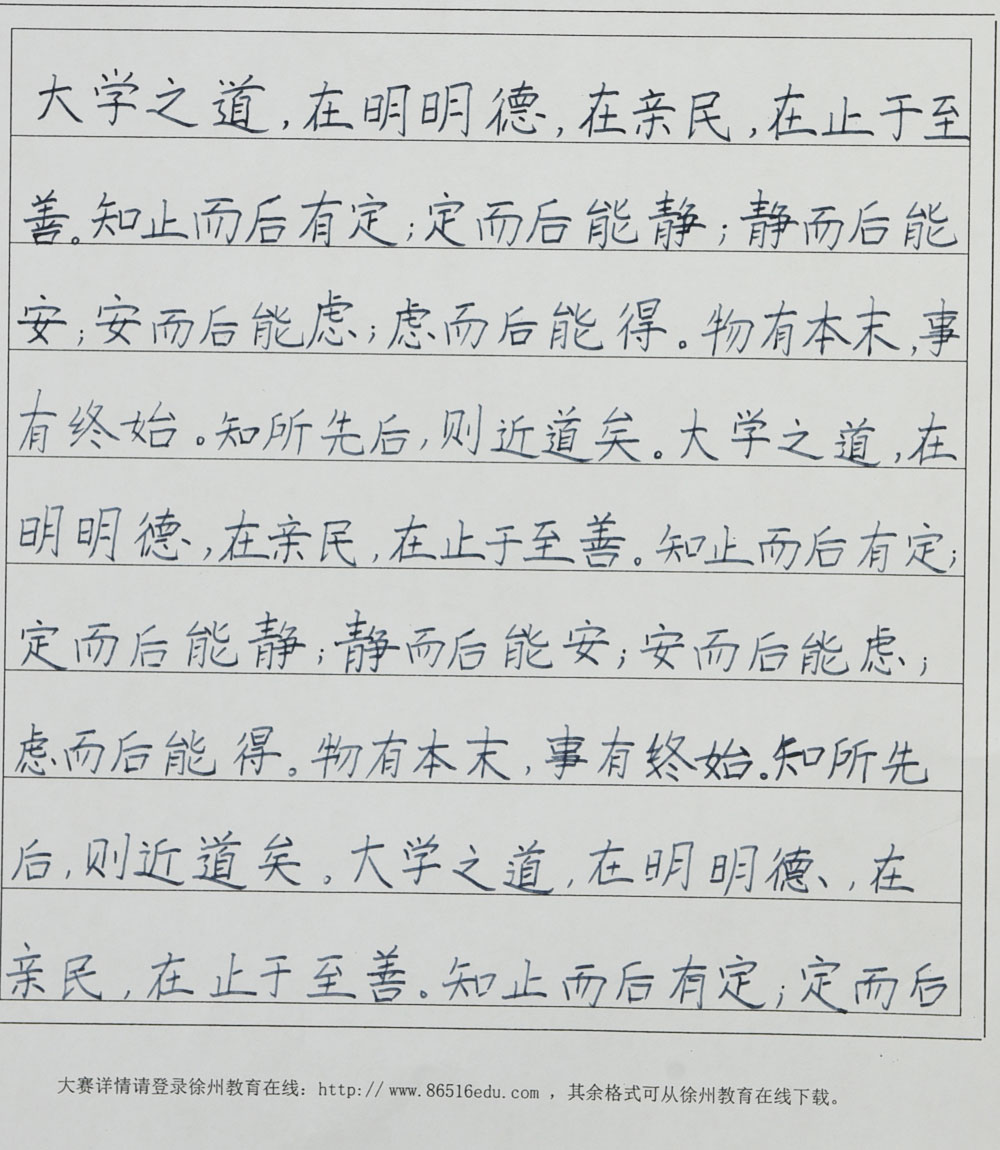 大学之道,在明明德,在亲民,在止于至
善。知止而后有定;定而后能静;静而后能
安;安而后能虑;虑而后能得。物有本末,事
有终始。知所先后,则近道矣。大学之道,在
明明德,在亲民,在止于至善。知止而后有定;
定而后能静;静而后能安;安而后能虑;
虑而后能得。物有本末,事有终始。知所先
后,则近道矣。大学之道,在明明德,在
亲民,在止于至善。知止而后有定;定而后
大赛详情请登录徐州教育在线：http://www.86516edu.com，其余格式可从徐州教育在线下载。